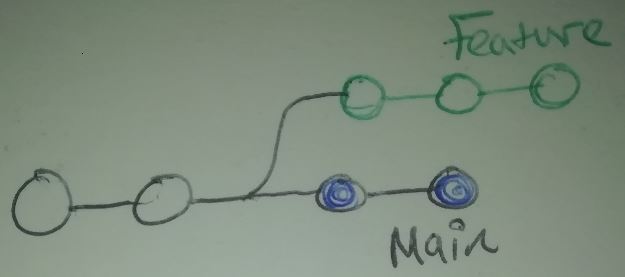 Feature
Main